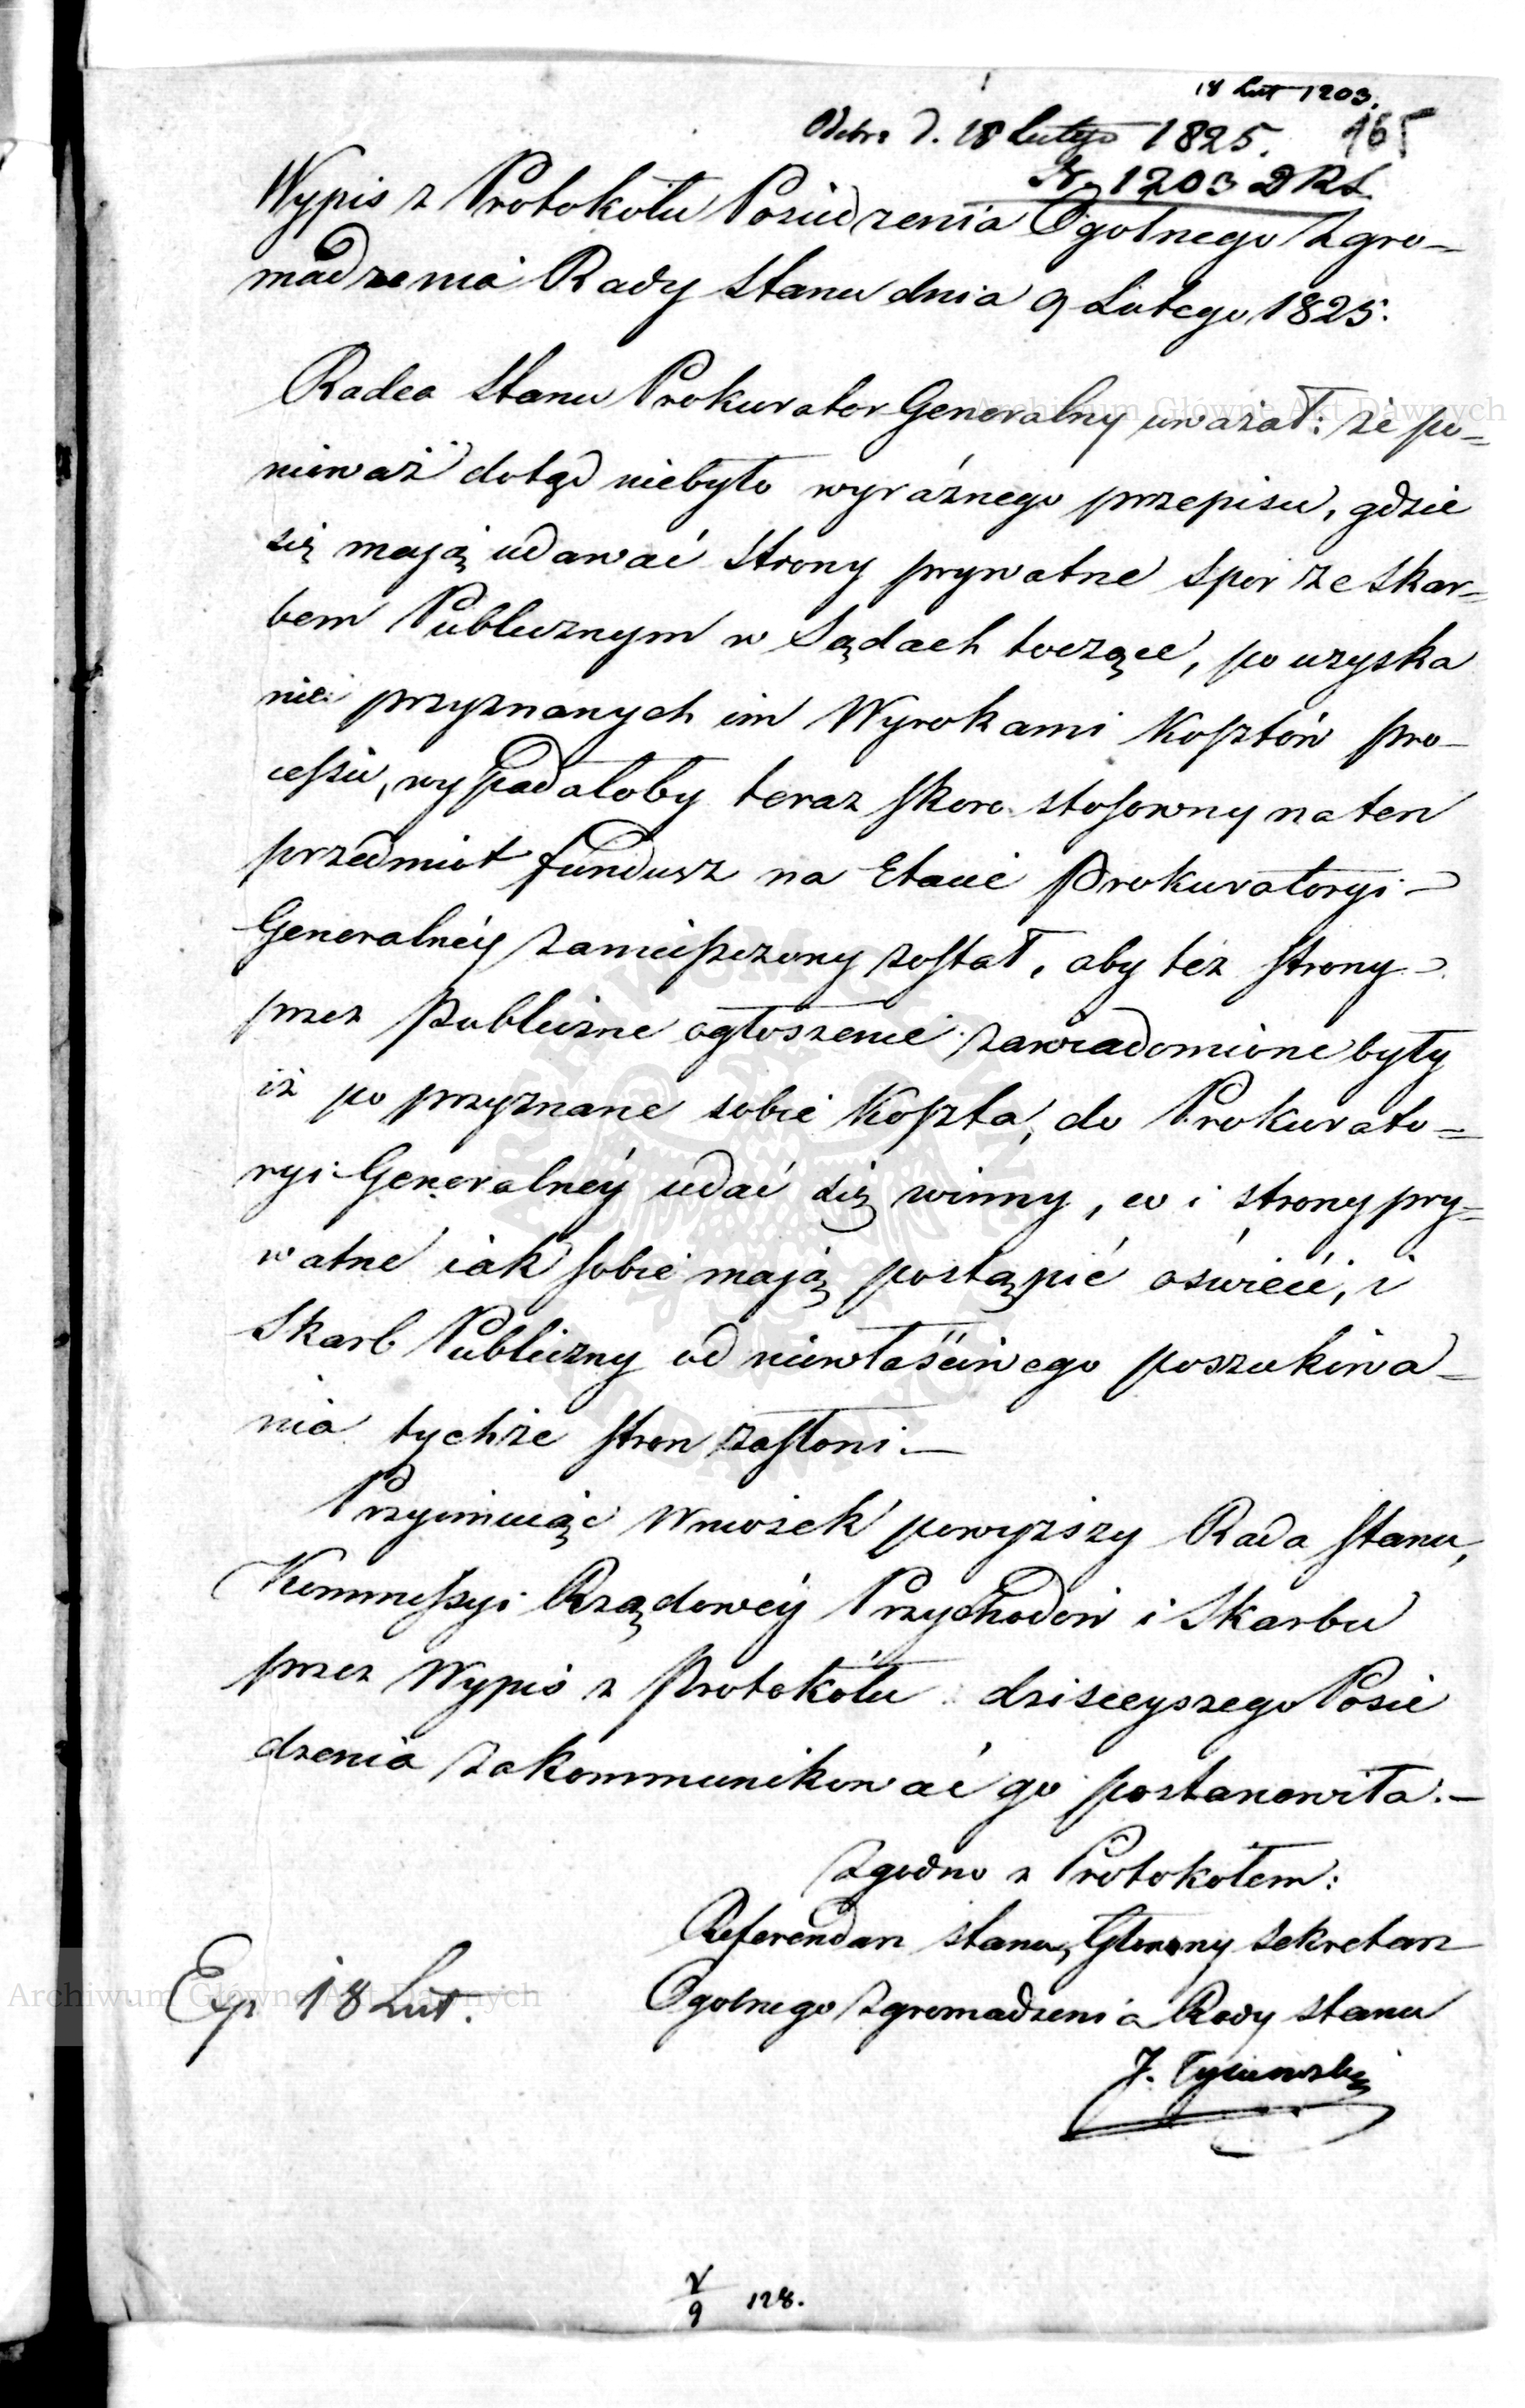 18 Lut 1203.
Odebr d. 18 Lutego 1825. 165
Nr 1203 DRS
Wypis z Protokółu Posiedzenia Ogolnego Zgro-
madzenia Rady Stanu dnia 9 Lutego 1825.
Radca Stanu Prokurator Generalny uważał: że po-
nieważ dotąd niebyło wyraźnego przepisu, gdzie
się mają udawać Strony prywatne spór ze Skar-
bem Publicznym w Sądach toczące, po uzyska
nie przyznanych im Wyrokami Kosztów pro-
cessu, wypadałoby teraz skoro stosowny na ten
przedmiot fundusz na Etacie Prokuratoryi
Generalnéy zamieszczony został, aby też strony
przez Publiczne ogłoszenie zawiadomione były
iż po przyznane sobie Koszta, do Prokurato-
ryi Generalnéy udać się winny, co i strony pry-
watne iak sobie mają postąpić oświeci, i
Skarb Publiczny od niewłaściwego poszukiwa-
nia tychże stron zasłoni.—
Przyimuiąc Wniosek powyższy Rada Stanu,
Kommissyi Rządowéy Przychodów i Skarbu
przez Wypis z Protokółu dzisieyszego Posie
dzenia zakommunikować go postanowiła.—
Zgodno z Protokółem:
Referendarz Stanu, Główny Sekretarz
Ogolnego Zgromadzenia Rady Stanu
Exp 18 Lut.
J. Tymowski
V/9 128.
Archiwum Główne Akt Dawnych
Archiwum Główne Akt Dawnych
ARCHIWUM GŁÓWNE AKT DAWNYCH